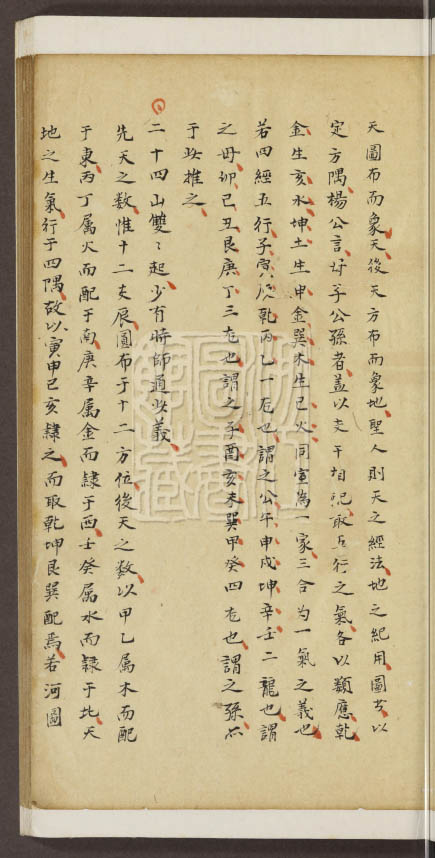 天圖布而象天後天方布而象地聖人則天之經法地之紀用圖書以
定方隅楊公言父母子公孫者盖以支干相配取五行之氣各以類應乾
金生亥水坤土生申金巽木生巳火同室為一家三合为一氣之義也
若四經五行子寅辰乾丙乙一龙也謂之公午申戌坤辛壬二龍也謂
之母卯巳丑艮庚丁三龙也謂之子酉亥未巽甲癸四龙也謂之孫亦
于此推之
二十四山雙〻起少有時師通此義
先天之数惟十二支辰圓布于十二方位後天之数以甲乙属木而配
于東丙丁属火而配于南庚辛属金而隸于西壬癸属水而隸于北天
地之生氣行于四隅故以寅申巳亥隸之而取乾坤艮巽配焉若河圖